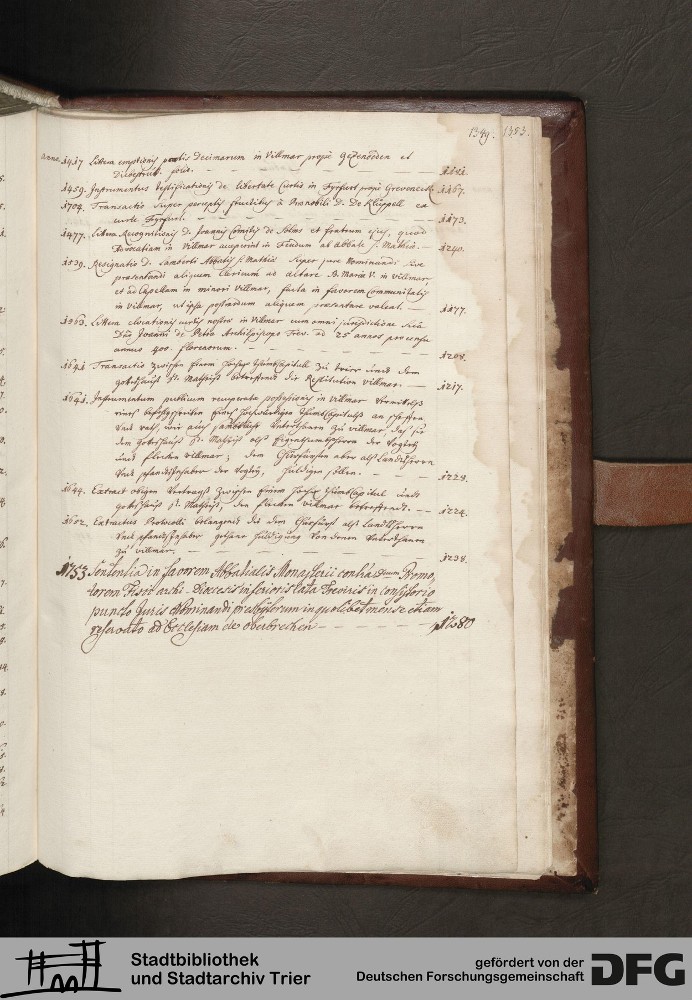 1349. 1353.
Anno 1417 Littera emptionis partis Decimarum in Villmar prope
Diebestruth folio. — 1141.
1459. Instrumentum testificationis de libertate Curtis in Fyrfurt prope Greveneck 1167.
1704. Transactio super perceptis fructibus à Praenobili D. De Klüppell ex
curte Fyrfurt. — 1173.
1477. Littera Recognitionis D. Joannis Comitis de Solms et fratrum ejus, quod
Advocatiam in Villmar acceperint in Feudum ab Abbate S. Mathiae. — 1240.
1539. Resignatio D. Lamberti Abbatis S. Mathiae super jure Nominandi sive
praesentandi aliquem Clericum ad altare B. Mariae V. in Villmar,
et ad Capellam in minori Villmar, facta in favorem Communitatis
in Villmar, ut ipsa postmodum aliquem praesentare valeat. — 1177.
1363. Littera elocationis curtis nostrae in Villmar cum omni jurisdictione sua
Dno Joanni de Petra Archiepiscopo Trev. ad 25 annos pro censu
annuo 400. florenorum. — 1208.
1641. Transactio zwischen Einem Hochw. Thumbcapitul zu Trier undt dem
Gotteshaus St. Mathiss betreffend die Restitution Villmar. — 1217.
1641. Instrumentum publicum recuperatae possessionis in Villmar vermittelss
eines befehlschreiben Eines Hochwürdigen Thumbcapituls an Scheffen
undt rath, wie auch sambtliche Unterthanen zu Villmar das sie
dem Gotteshaus St. Mathiss als Eigenthumsherrn der Vogtey
undt Flecken Villmar; dem Churfürsten aber als Landtsherrn
undt pfandtsinhaber der Vogtey, huldigen sollen. — 1223.
1644. Extract obigen Vertrags zwischen Einem Hochw. Thumbcapitul undt
Gotteshaus St. Mathiss, den Flecken Villmar betreffendt. — 1224.
1602. Extractus Protocolli belangend die dem Churfürst als Landtsherrn
undt pfandtsinhaber gethane Huldigung von denen Unterthanen
zu Villmar. — 1238.
1753 Sententia in favorem Abbatialis Monasterii contra Dnum Promo,
torem Fisci archi-Dioecesis inferioris lata Treviris in consistorio
puncto Juris Nominandi presbyterum in quolibet mense etiam
reservato ad Ecclesiam de oberbrechen — 1580
Stadtbibliothek
und Stadtarchiv Trier
gefördert von der
Deutschen Forschungsgemeinschaft
DFG